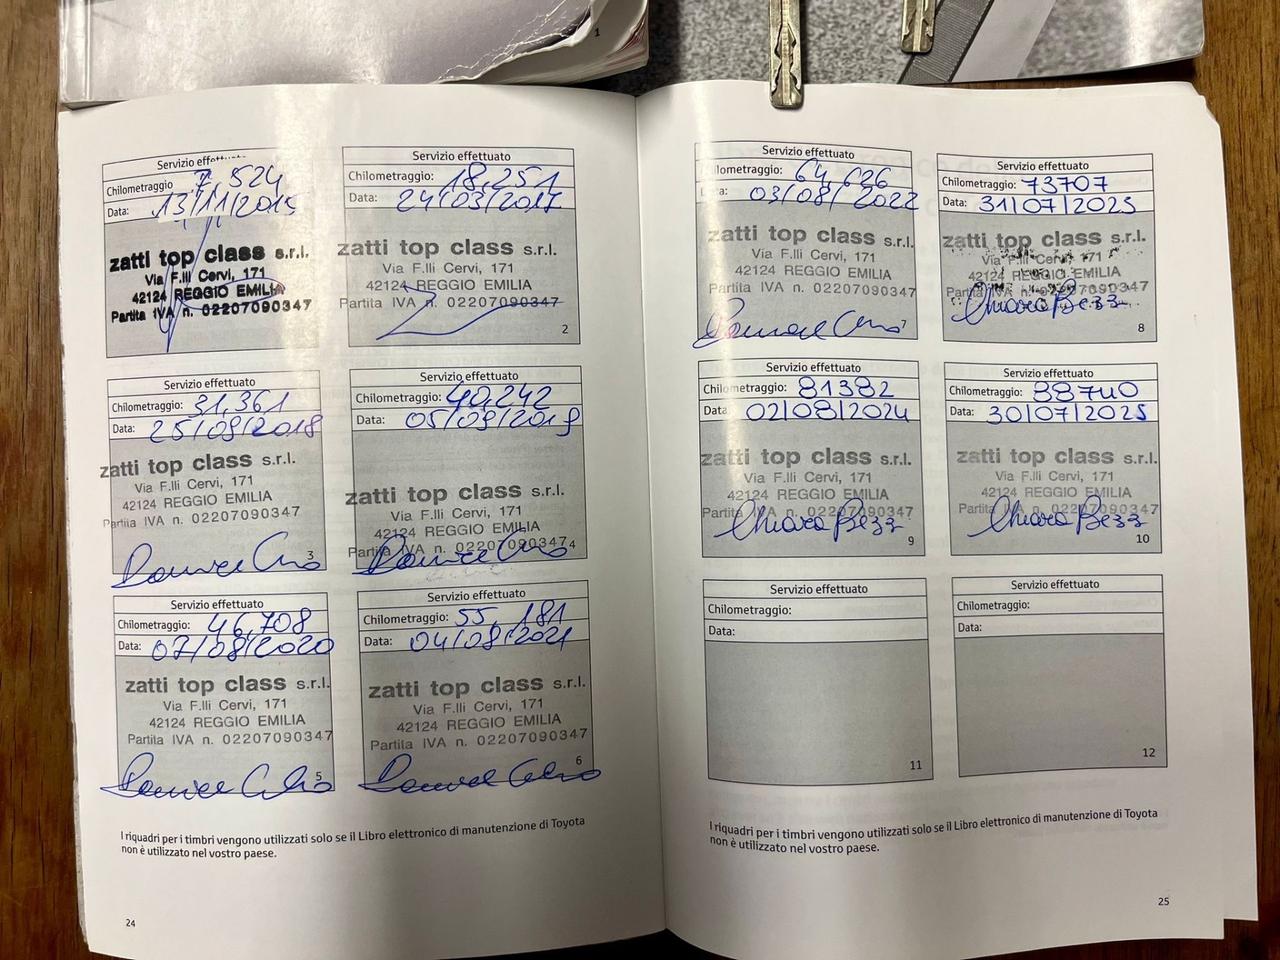 1
Servizio effettuato
Chilometraggio 7,524
Data: 13/11/2015
zatti top class s.r.l.
Via F.lli Cervi, 171
42124 REGGIO EMILIA
Partita IVA n. 02207090347
Servizio effettuato
Chilometraggio: 18,251
Data: 24/03/2017
zatti top class s.r.l.
Via F.lli Cervi, 171
42124 REGGIO EMILIA
Partita IVA n. 02207090347
2
Servizio effettuato
Chilometraggio: 31,361
Data: 25/09/2018
zatti top class s.r.l.
Via F.lli Cervi, 171
42124 REGGIO EMILIA
Partita IVA n. 02207090347
3
Servizio effettuato
Chilometraggio: 40,242
Data: 05/09/2019
zatti top class s.r.l.
Via F.lli Cervi, 171
42124 REGGIO EMILIA
Partita IVA n. 02207090347
4
Servizio effettuato
Chilometraggio: 46,708
Data: 07/08/2020
zatti top class s.r.l.
Via F.lli Cervi, 171
42124 REGGIO EMILIA
Partita IVA n. 02207090347
5
Servizio effettuato
Chilometraggio: 55,181
Data: 04/08/2021
zatti top class s.r.l.
Via F.lli Cervi, 171
42124 REGGIO EMILIA
Partita IVA n. 02207090347
6
I riquadri per i timbri vengono utilizzati solo se il Libro elettronico di manutenzione di Toyota
non è utilizzato nel vostro paese.
24
Servizio effettuato
Chilometraggio: 64,626
Data: 03/08/2022
zatti top class s.r.l.
Via F.lli Cervi, 171
42124 REGGIO EMILIA
Partita IVA n. 02207090347
7
Servizio effettuato
Chilometraggio: 73707
Data: 31/07/2023
zatti top class s.r.l.
Via F.lli Cervi, 171
42124 REGGIO EMILIA
Partita IVA n. 02207090347
Chiara Bezz
8
Servizio effettuato
Chilometraggio: 81382
Data: 02/08/2024
zatti top class s.r.l.
Via F.lli Cervi, 171
42124 REGGIO EMILIA
Partita IVA n. 02207090347
Chiara Bezz
9
Servizio effettuato
Chilometraggio: 88740
Data: 30/07/2025
zatti top class s.r.l.
Via F.lli Cervi, 171
42124 REGGIO EMILIA
Partita IVA n. 02207090347
Chiara Bezz
10
Servizio effettuato
Chilometraggio:
Data:
11
Servizio effettuato
Chilometraggio:
Data:
12
I riquadri per i timbri vengono utilizzati solo se il Libro elettronico di manutenzione di Toyota
non è utilizzato nel vostro paese.
25